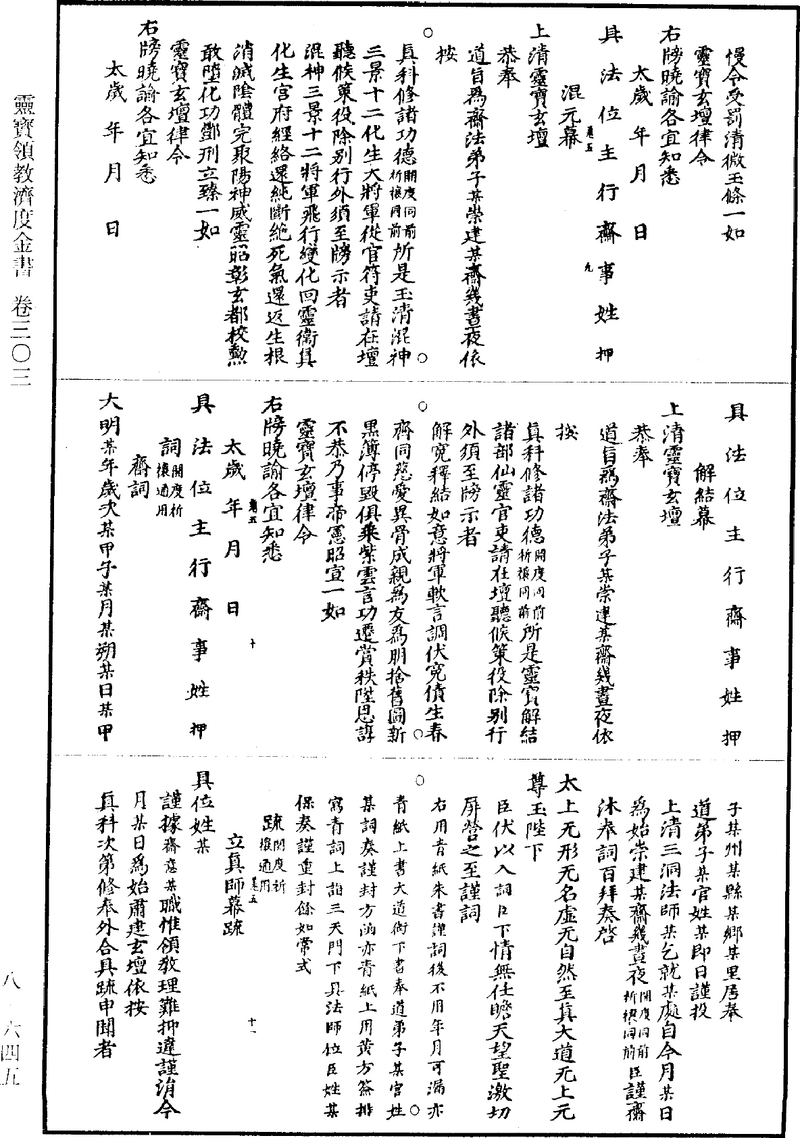 慢令受罰清微玉條一如
靈寶玄壇律令
右牓曉諭各宜知悉
太歲年月日
具法位主行齋事姓押
混元幕
上清靈寶玄壇
恭奉
道旨爲齋法弟子某崇建某齋幾晝夜依
按
眞科修諸功德開度同前祈禳同前所是玉清混神
三景十二化生大將軍從官符吏請在壇
聽候策役除別行外須至牓示者
混神三景十二將軍飛行變化回靈衛具
化生官府經絡還純斷絕死氣還返生根
消滅陰體完聚陽神威靈昭彰玄都校勲
敢墮化功酆刑立臻一如
靈寶玄壇律令
右牓曉諭各宜知悉
太歲年月日
具法位主行齋事姓押
解結幕
上清靈寶玄壇
恭奉
道旨爲齋法弟子某崇建某齋幾晝夜依
按
眞科修諸功德開度同前祈禳同前所是靈寶解結
諸部仙靈官吏請在壇聽候策役除別行
外須至牓示者
解寃釋結如意將軍軟言調伏寃債生春
齊同慈愛異骨成親爲友爲朋捨舊圖新
黑簿停毀俱乘紫雲言功遷賞秩陞恩諄
不恭乃事帝憲昭宣一如
靈寶玄壇律令
右牓曉諭各宜知悉
太歲年月日
具法位主行齋事姓押
詞開度祈禳通用
齋詞
大明某年歲次某甲子某月某朔某日某甲
子某州某縣某鄉某里居奉
道弟子某官姓某即日謹投
上清三洞法師某乞就某處自今月某日
爲始崇建某齋幾晝夜開度同前祈禳同前臣謹齋
沐奉詞百拜奏啓
太上无形无名虛无自然至眞大道无上元
尊玉陛下
臣伏以入詞臣下情無任瞻天望聖激切
屏營之至謹詞
右用青紙朱書謹詞後不用年月可漏亦
青紙上書大道御下書奉道弟子某官姓
某詞奏謹封方函亦青紙上用黃方簽排
寫青詞上詣三天門下具法師位臣姓某
保奏謹重封餘如常式
疏開度祈禳通用
立眞師幕疏
具位姓某
謹據齋意某職惟領敎理難抑違謹消今
月某日爲始肅建玄壇依按
眞科次第修奉外合具疏申聞者
靈寶領教濟度金書 卷三〇三
八 六四五